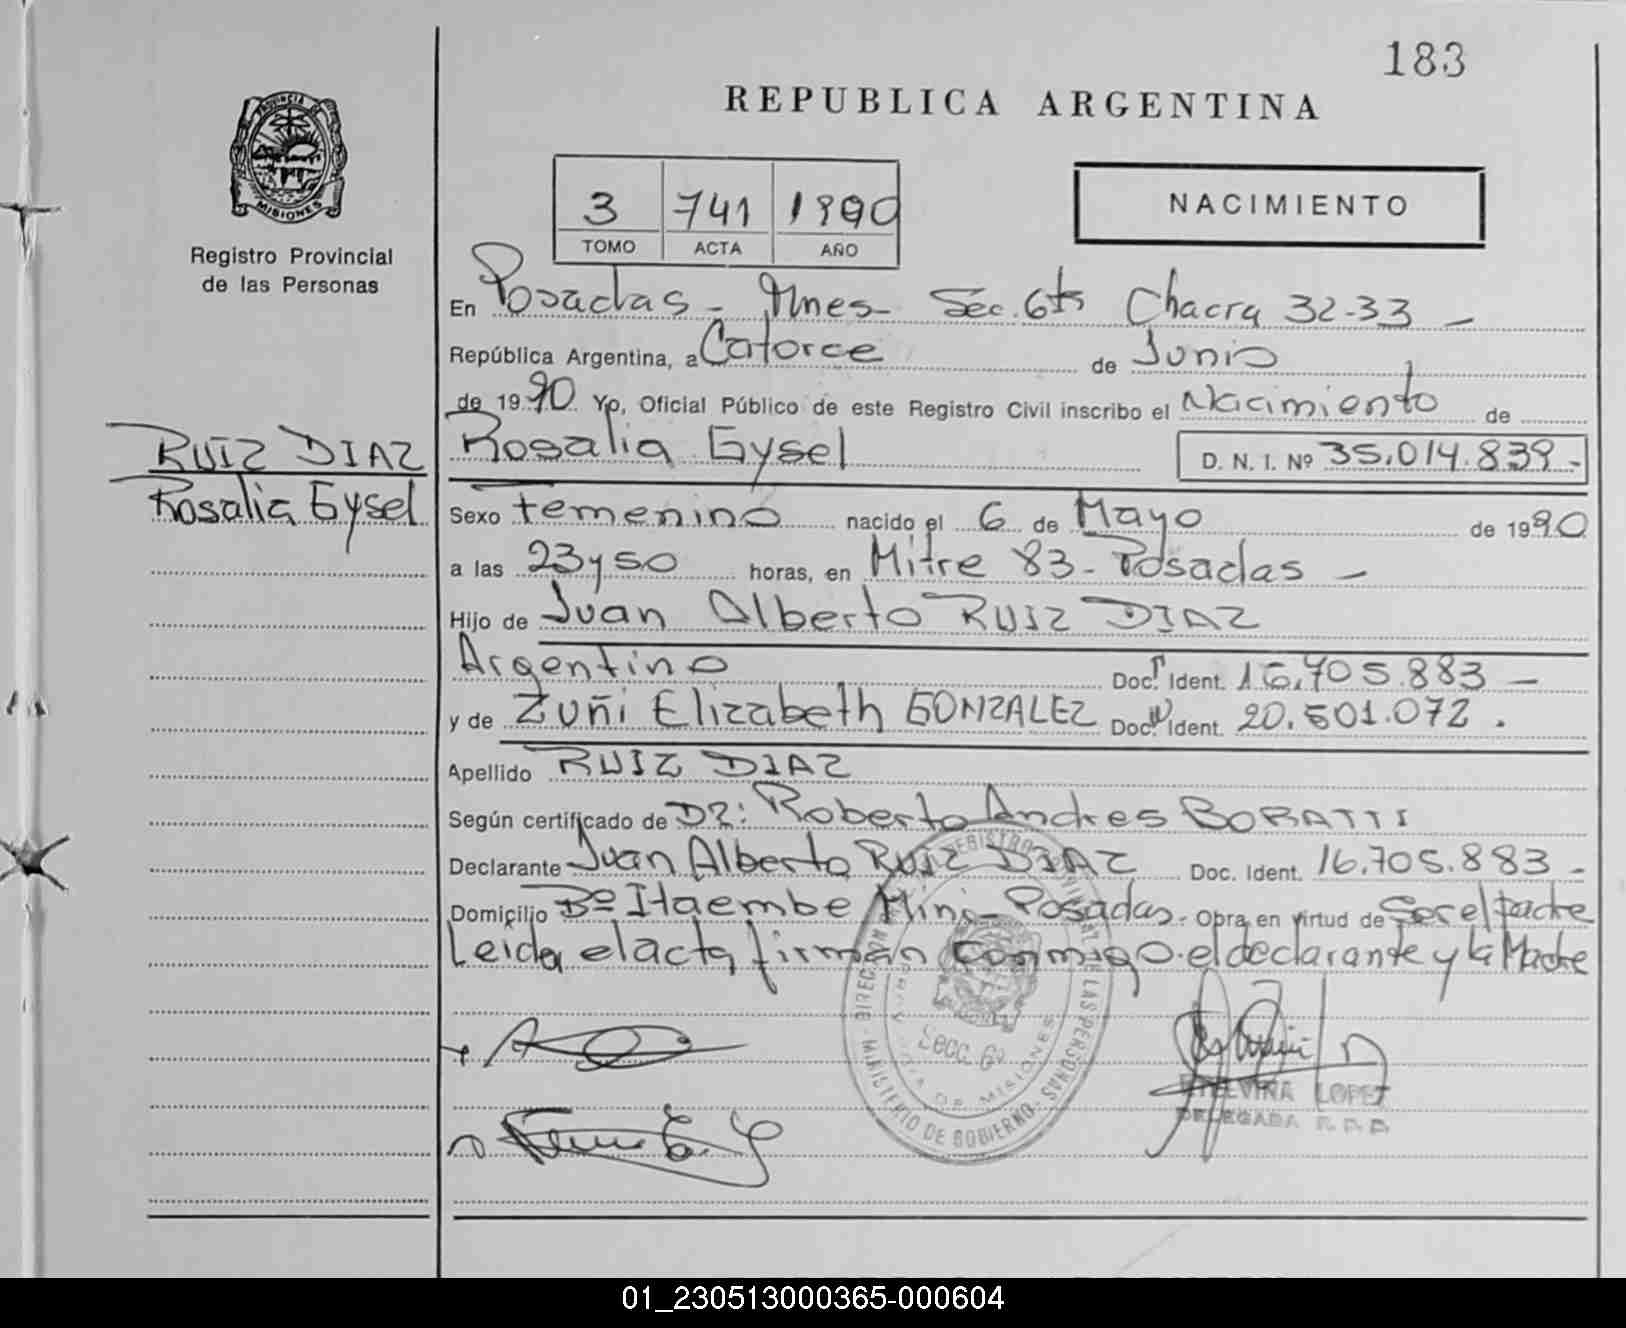 183
REPUBLICA ARGENTINA
PROVINCIA DE
MISIONES
Registro Provincial
de las Personas
3 741 1990
TOMO ACTA AÑO
NACIMIENTO
En Posadas - Mnes - Sec. 6ta Chacra 32-33 -
República Argentina, a Catorce de Junio
de 1990 Yo, Oficial Público de este Registro Civil inscribo el Nacimiento de
RUIZ DIAZ
Rosalia Gysel
Rosalia Gysel D. N. I. Nº 35.014.839 -
Sexo Femenino nacido el 6 de Mayo de 1990
a las 23 y 50 horas, en Mitre 83 - Posadas -
Hijo de Juan Alberto RUIZ DIAZ
Argentino Doc. Ident. 16.705.883 -
y de Zuñi Elizabeth GONZALEZ Doc. Ident. 20.501.072 .
Apellido RUIZ DIAZ
Según certificado de DR: Roberto Andres BORATTI
Declarante Juan Alberto RUIZ DIAZ Doc. Ident. 16.705.883 -
Domicilio Bº Itaembe Mini - Posadas - Obra en virtud de Ser el padre
Leida el acta firman conmigo el declarante y la Madre
Secc. 6
MINISTERIO DE GOBIERNO
DE MISIONES
LAS PERSONAS
ETELVINA LOPEZ
DELEGADA R.P.P.
01_230513000365-000604